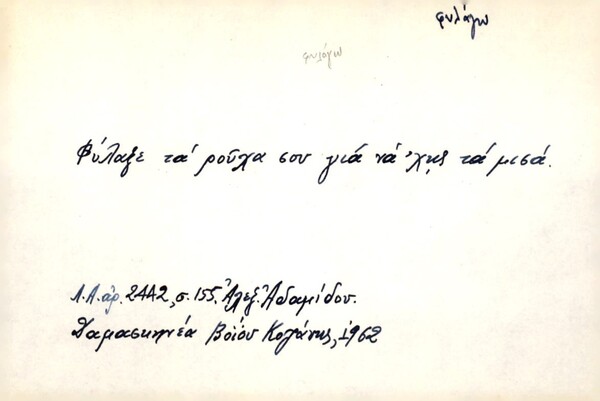 φυλάγω
φυλάγω
Φύλαξε τά ροῦχα σου γιά νά 'χῃς τά μισά.
Λ.Α. ἀρ. 2442, σ. 155. Ἀλεξ. Ἀδαμίδου.
Δαμασκηνέα Βοΐου Κοζάνης, 1962